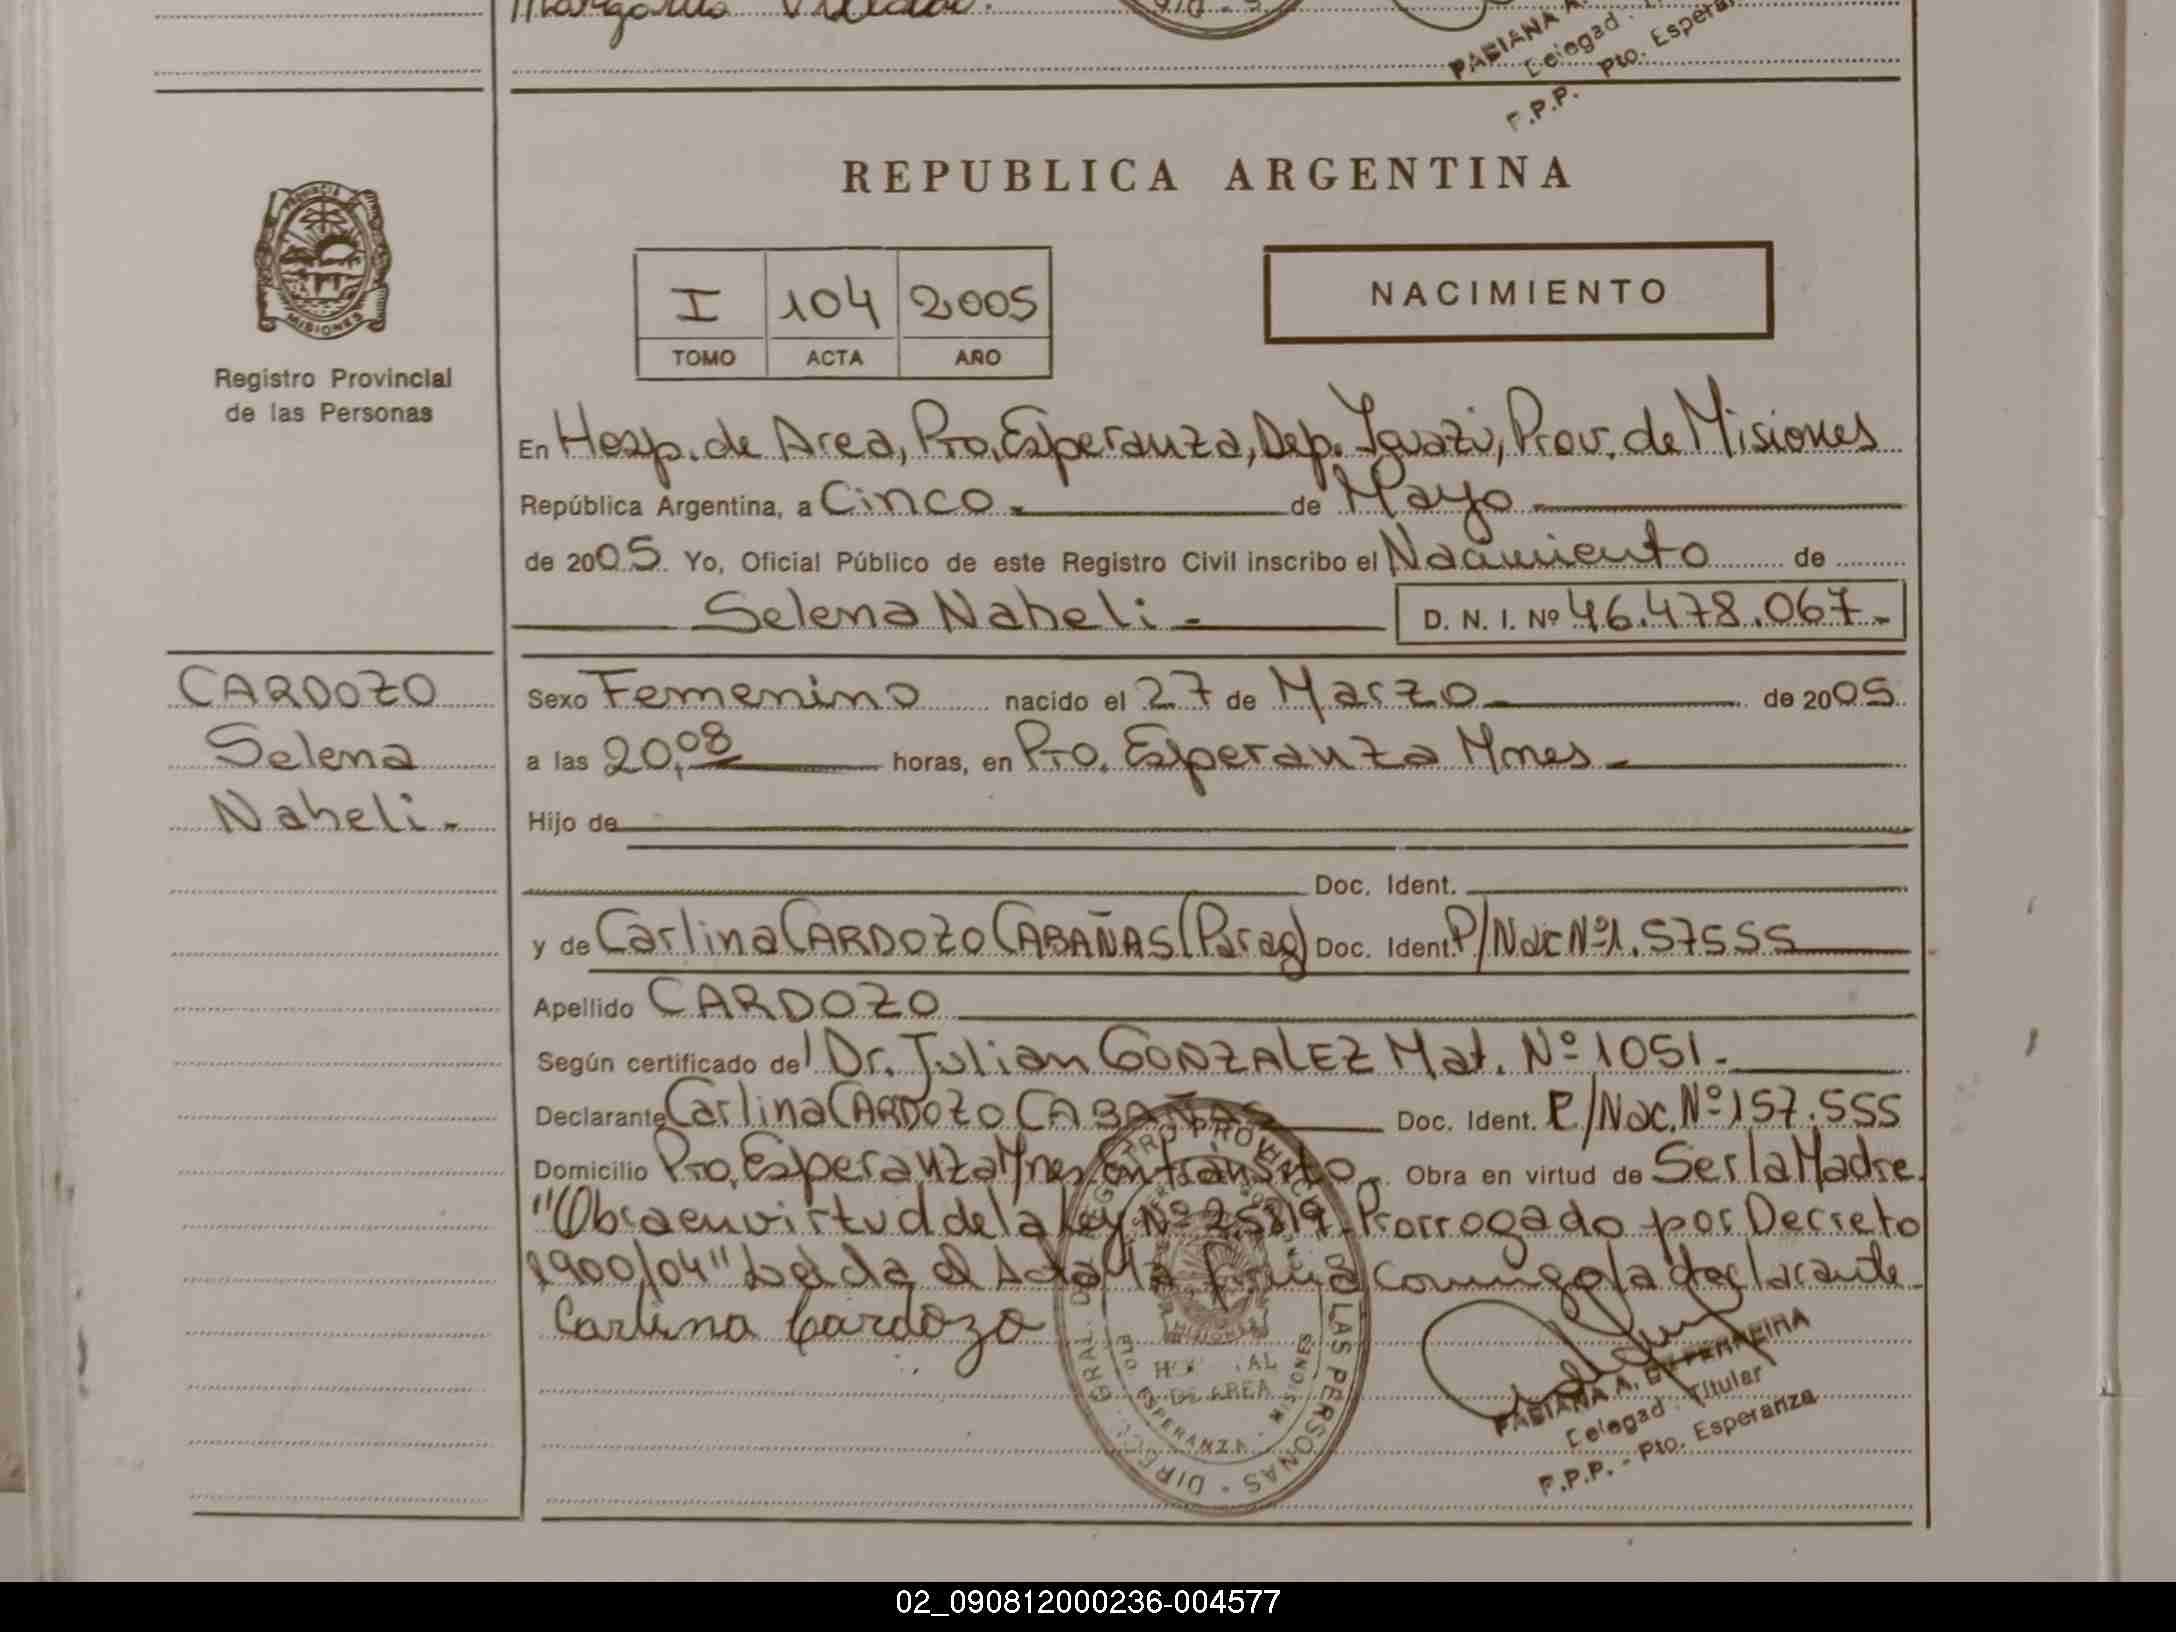 Margarita
PABIANA A.
Delegad
Pto. Esperan
F.P.P.
REPUBLICA ARGENTINA
PROVINCIA
MISIONES
Registro Provincial
de las Personas
I 104 2005
TOMO ACTA AÑO
NACIMIENTO
En Hosp. de Area, Pto. Esperanza, Dep. Iguazú, Prov. de Misiones
República Argentina, a Cinco.- de Mayo
de 2005. Yo, Oficial Público de este Registro Civil inscribo el Nacimiento de
Selena Naheli.- D. N. I. Nº 46.478.067.-
CARDOZO
Selena
Naheli.-
Sexo Femenino nacido el 27 de Marzo de 2005
a las 20,08 horas, en Pto. Esperanza Mnes.-
Hijo de
Doc. Ident.
y de Carlina CARDOZO CABAÑAS (Parag) Doc. Ident. P/Nac Nº 1.57555
Apellido CARDOZO
Según certificado del Dr. Julian GONZALEZ Mat. Nº 1051.-
Declarante Carlina CARDOZO CABAÑAS Doc. Ident. P/Nac. Nº 157.555
Domicilio Pto. Esperanza Mnes. En transito.- Obra en virtud de Ser la Madre.
"Obra en virtud de la Ley Nº 25819. Prorrogado por Decreto
1900/04" Leida el Acta la firma conmigo la declarante.
Carlina Cardozo
REGISTRO PROVINCIAL DE LAS PERSONAS - DIRECC. GRAL. D
MISIONES
DE AREA
ESPERANZA - MISIONES
PABIANA A. DE FERREIRA
Delegad Titular
F.P.P. - Pto. Esperanza
02_090812000236-004577